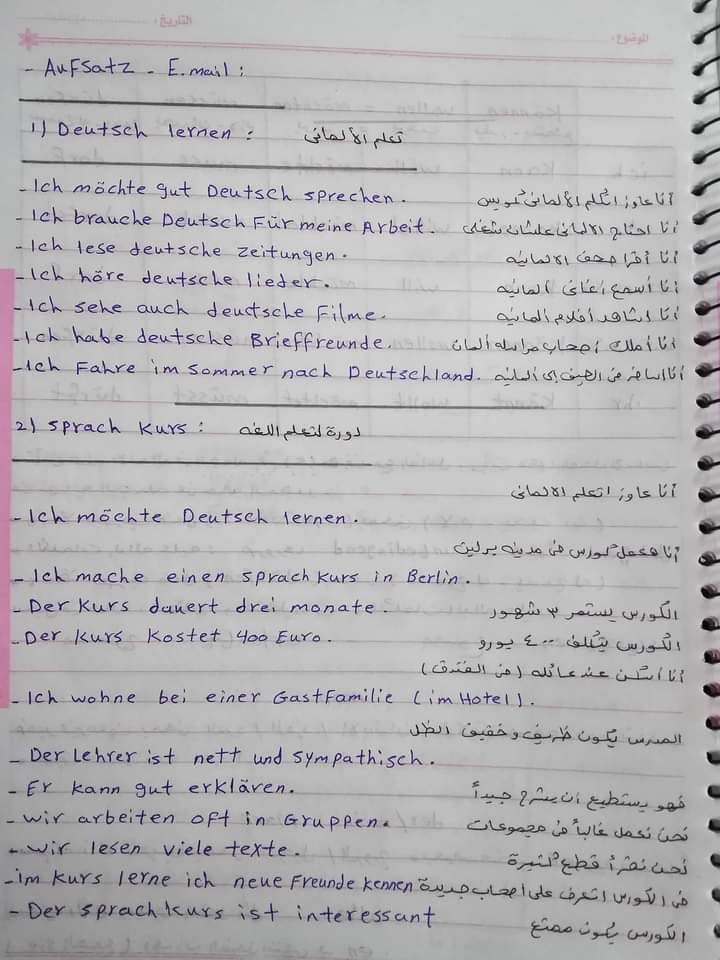 الموضوع: التاريخ:
- Aufsatz - E.mail :
1) Deutsch lernen : تعلم الألمانى
- Ich möchte gut Deutsch sprechen. أنا عاوز اتكلم الألمانى كويس
- Ich brauche Deutsch Für meine Arbeit. أنا احتاج الالمانى علشان شغلى
- Ich lese deutsche zeitungen. أنا أقرأ صحف الالمانيه
- Ich höre deutsche lieder. أنا أسمع أغانى ألمانيه
- Ich sehe auch deutsche Filme. أنا اشاهد أفلام المانيه
- Ich habe deutsche Brieffreunde. أنا أملك اصحاب مراسله ألمان
- Ich Fahre im sommer nach Deutschland. أنا اسافر فى الصيف إلى المانيه
2) Sprach kurs : دورة لتعلم اللغه
أنا عاوز اتعلم الالمانى
- Ich möchte Deutsch lernen.
أنا هعمل كورس فى مدينه برلين
- Ich mache einen sprachkurs in Berlin.
- Der Kurs dauert drei monate. الكورس يستمر ٣ شهور
- Der kurs kostet 400 Euro. الكورس يتكلف ٤٠٠ يورو
أنا أسكن عند عائله (فى الفندق)
- Ich wohne bei einer GastFamilie (im Hotel).
المدرس يكون ظريف وخفيف الظل
- Der Lehrer ist nett und sympathisch.
- Er kann gut erklären. فهو يستطيع أن يشرح جيداً
- wir arbeiten oft in Gruppen. نحن نعمل غالباً فى مجموعات
- wir lesen viele texte. نحن نقرأ قطع كثيرة
- im kurs lerne ich neue Freunde kennen فى الكورس اتعرف على اصحاب جديدة
- Der sprachkurs ist interessant الكورس يكون ممتع